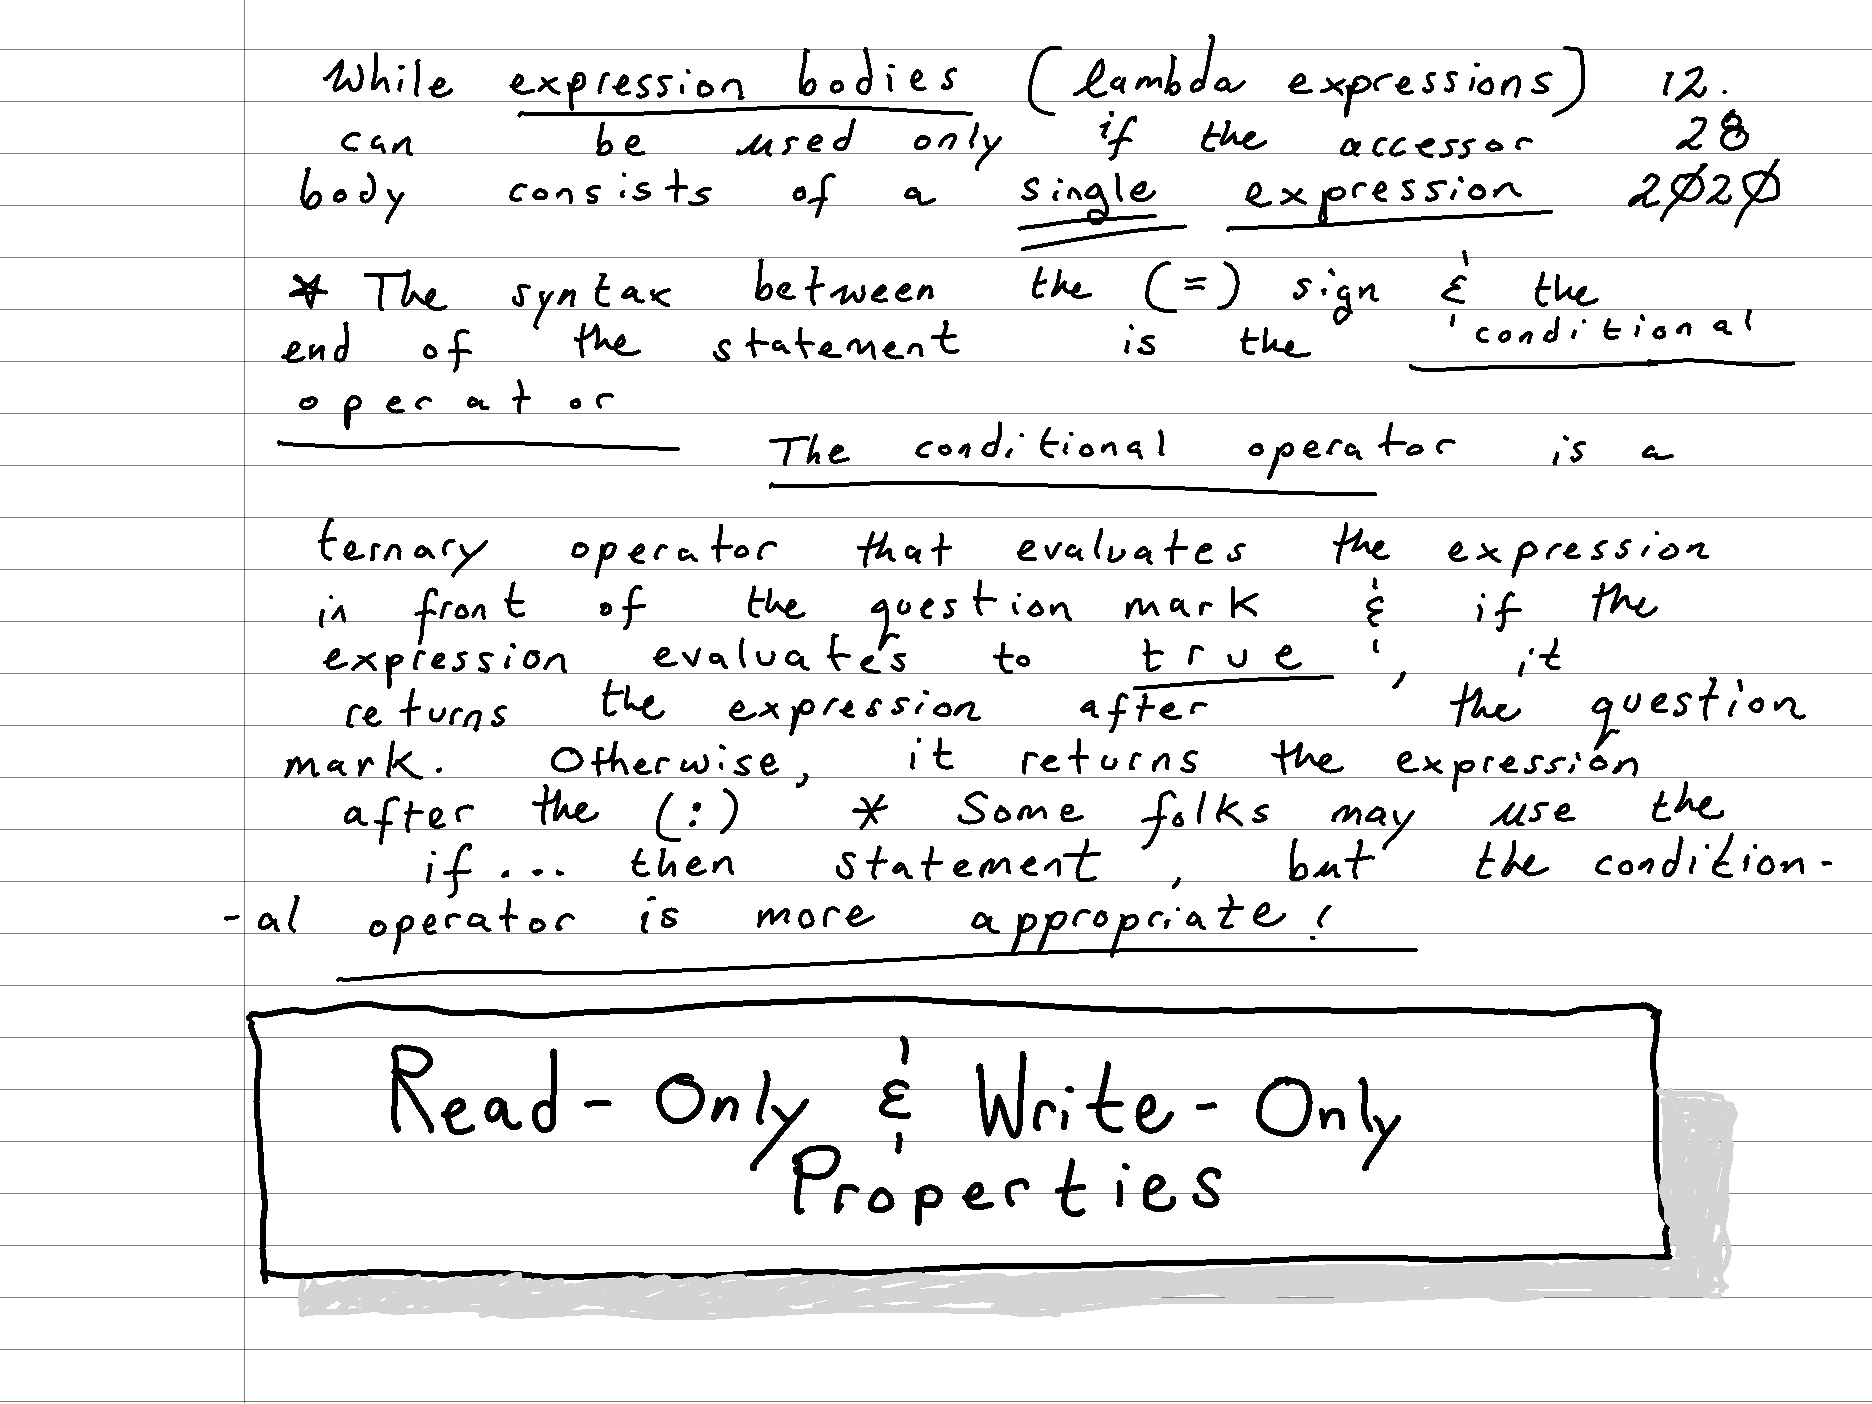 While expression bodies (lambda expressions) 12.
can be used only if the accessor 28
body consists of a single expression 2020
* The syntax between the (=) sign & the
end of the statement is the conditional
operator
The conditional operator is a
ternary operator that evaluates the expression
in front of the question mark & if the
expression evaluates to true, it
returns the expression after the question
mark. Otherwise, it returns the expression
after the (:) * Some folks may use the
if... then statement, but the condition-
-al operator is more appropriate!
Read-Only & Write-Only
Properties